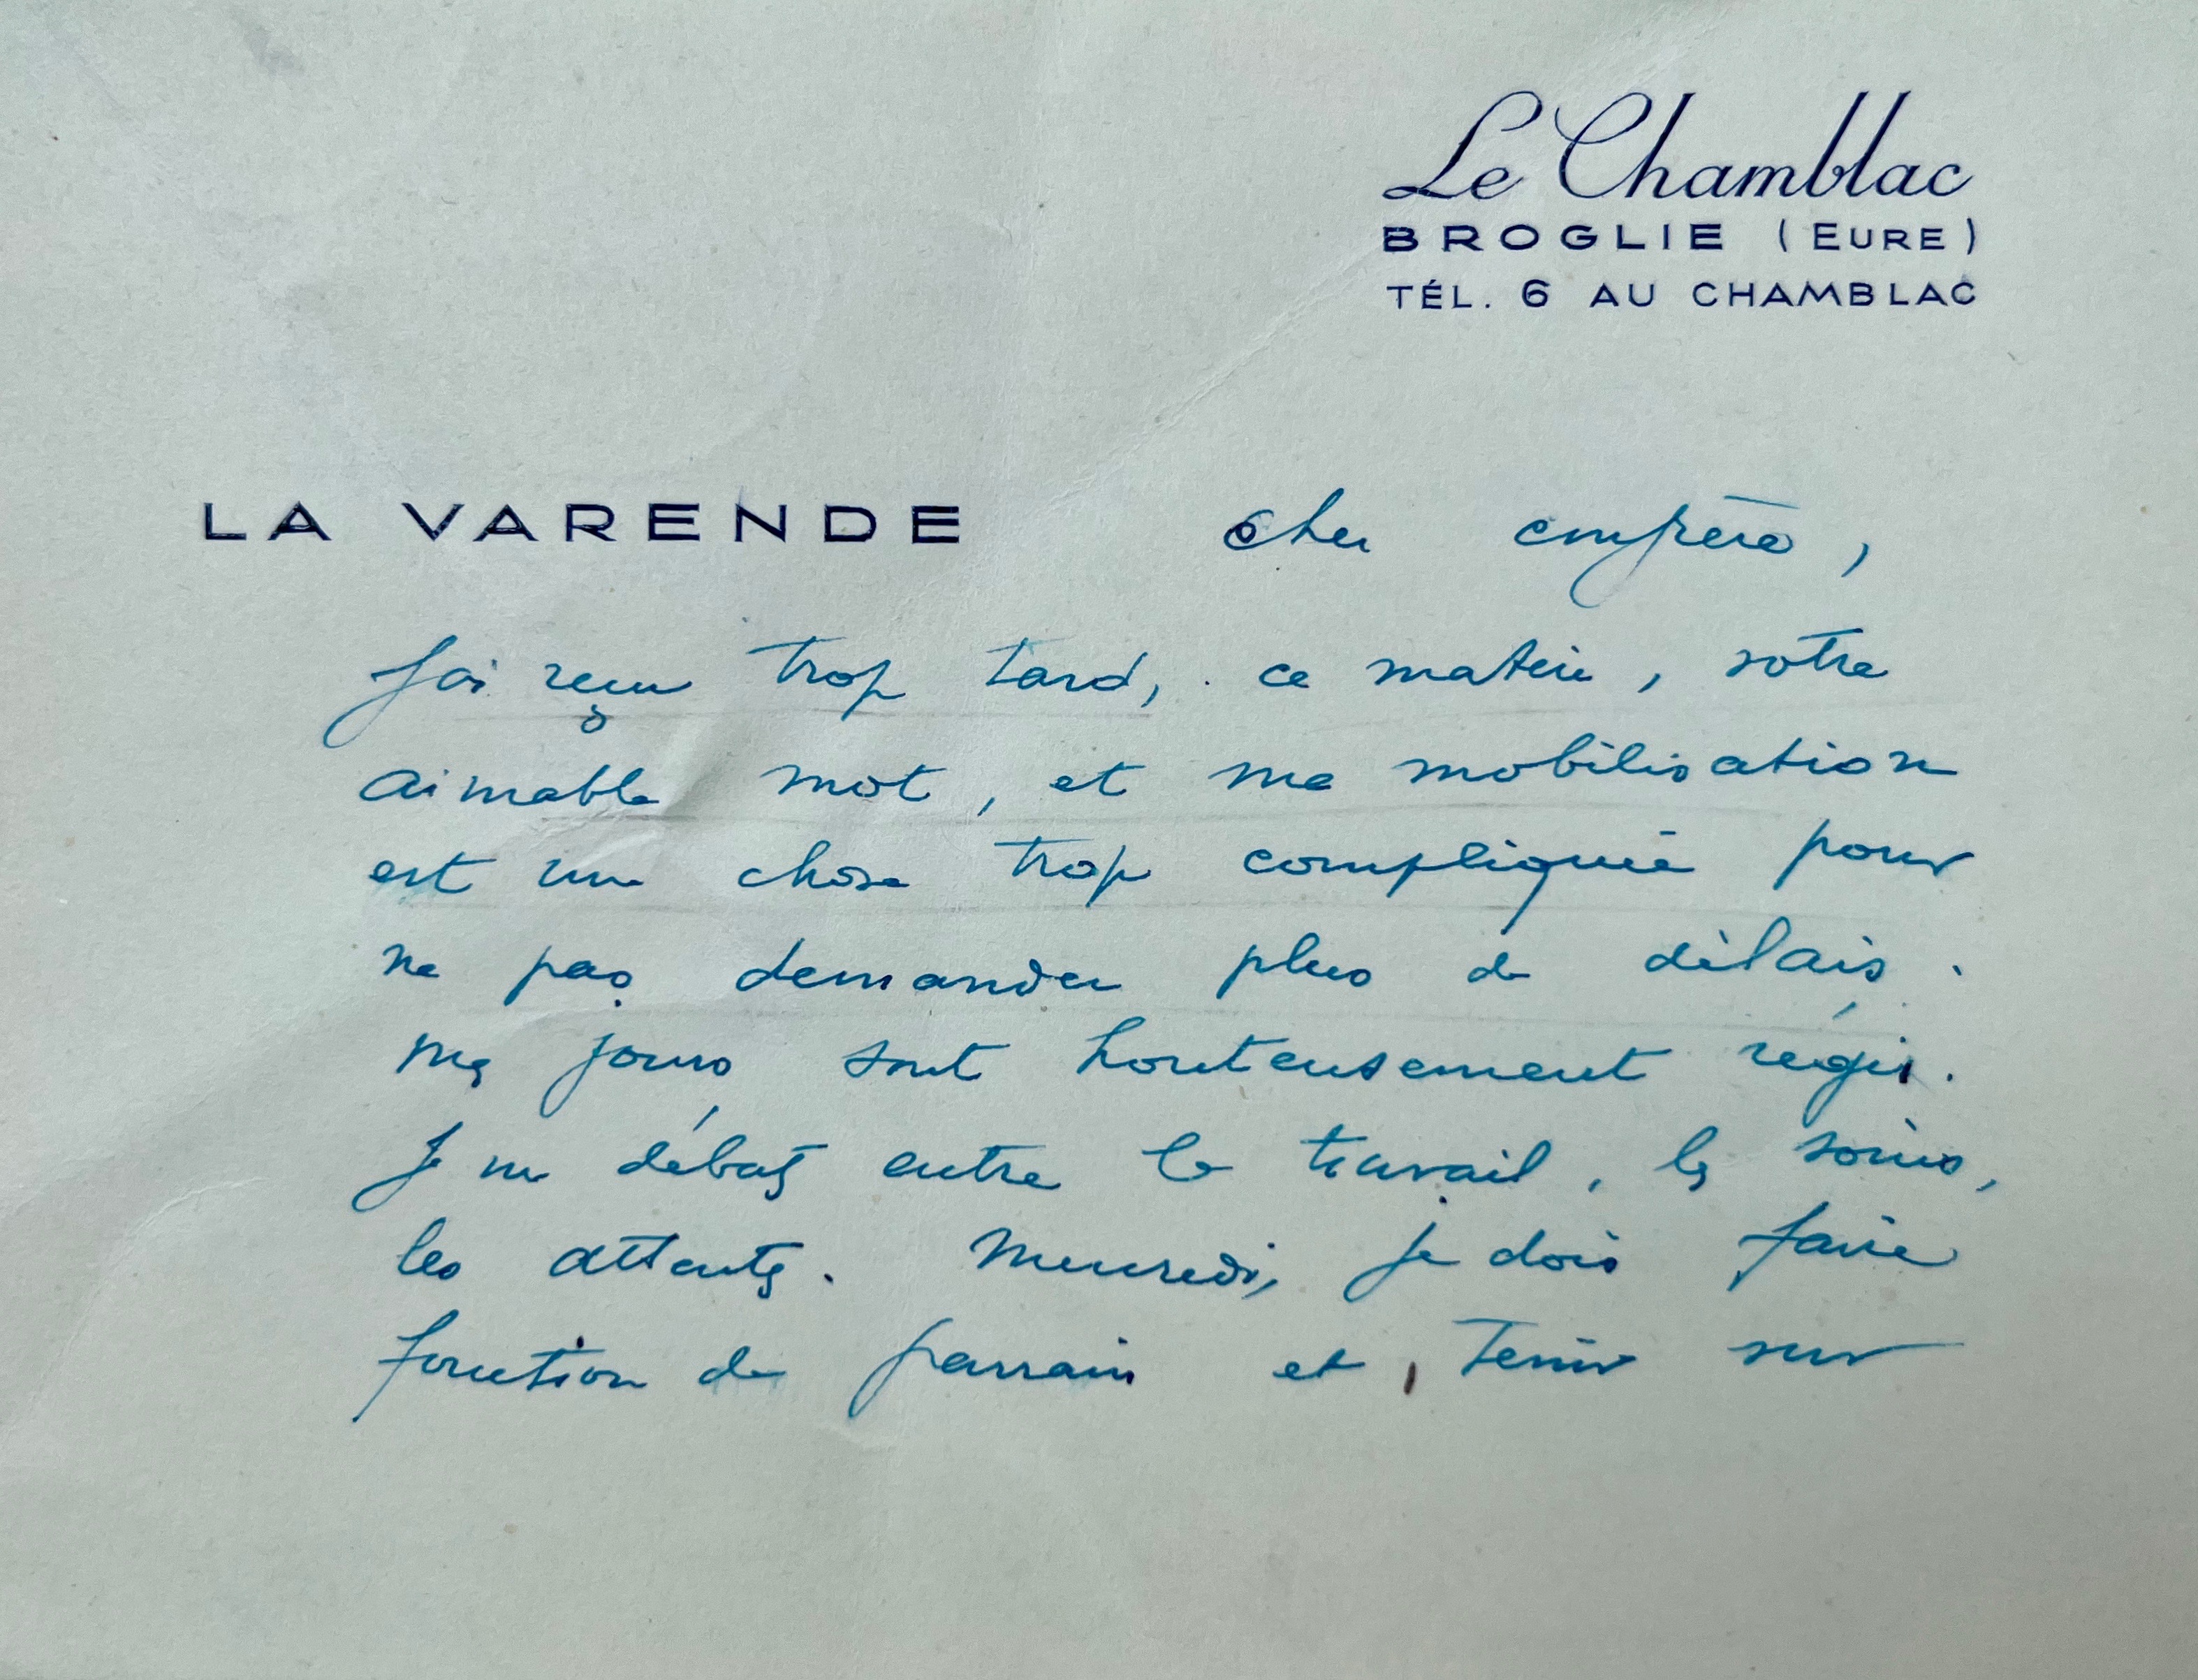 Le Chamblac
BROGLIE (EURE)
TÉL. 6 AU CHAMBLAC
LA VARENDE
Cher confrère,
J'ai reçu trop tard, ce matin, votre
aimable mot, et ma mobilisation
est une chose trop compliquée pour
ne pas demander plus de délais.
Mes jours sont honteusement régis.
Je me débats entre le travail, les soins,
les attentes. Mercredi, je dois faire
fonction de parrain et, tenir sur